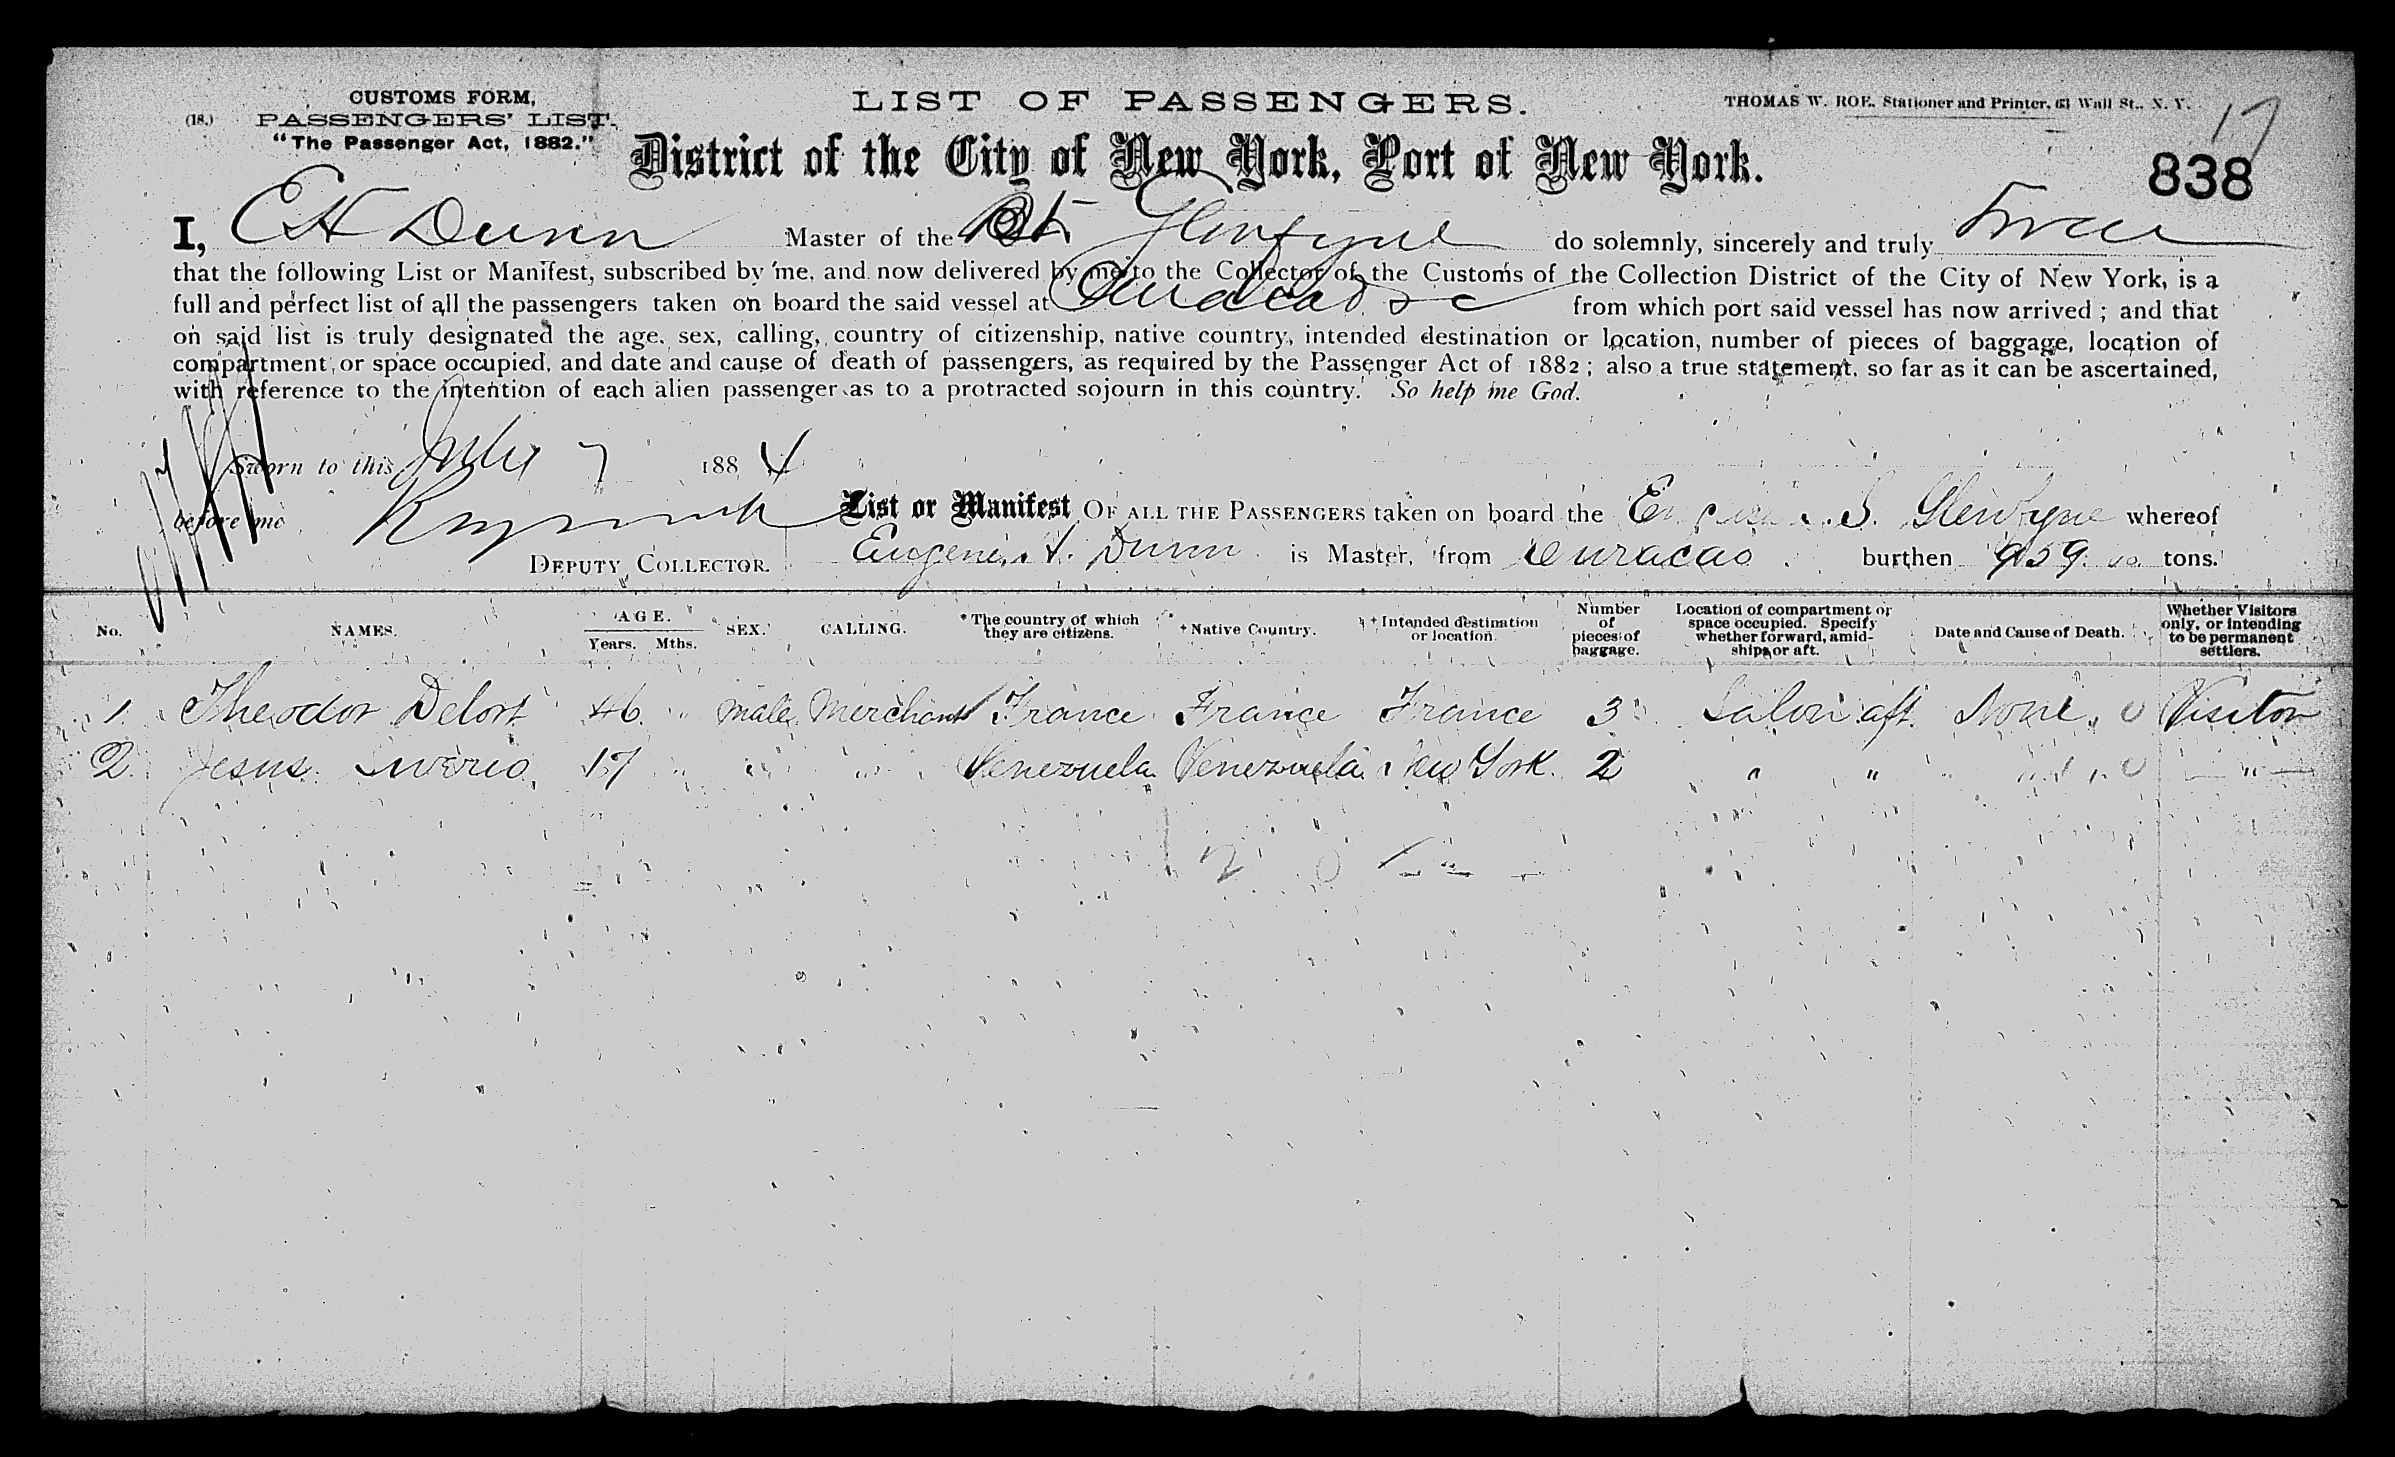 CUSTOMS FORM,
(18.) PASSENGERS' LIST.
"The Passenger Act, 1882."
LIST OF PASSENGERS.
THOMAS W. ROE, Stationer and Printer, 61 Wall St., N. Y.
17
District of the City of New York, Port of New York.
838
I, E A Dunn Master of the Glenfyne do solemnly, sincerely and truly Swear
that the following List or Manifest, subscribed by me, and now delivered by me to the Collector of the Customs of the Collection District of the City of New York, is a
full and perfect list of all the passengers taken on board the said vessel at Curacao &c from which port said vessel has now arrived ; and that
on said list is truly designated the age, sex, calling, country of citizenship, native country, intended destination or location, number of pieces of baggage, location of
compartment or space occupied, and date and cause of death of passengers, as required by the Passenger Act of 1882 ; also a true statement, so far as it can be ascertained,
with reference to the intention of each alien passenger as to a protracted sojourn in this country. So help me God.
Sworn to this July 7 1884
before me
DEPUTY COLLECTOR.
List or Manifest OF ALL THE PASSENGERS taken on board the S. Glenfyne whereof
Eugene A. Dunn is Master, from Curacao burthen 959 tons.
No. NAMES. AGE. Years. Mths. SEX. CALLING. * The country of which they are citizens. + Native Country. + Intended destination or location. Number of pieces of baggage. Location of compartment or space occupied. Specify whether forward, amid-ships or aft. Date and Cause of Death. Whether Visitors only, or intending to be permanent settlers.
1. Theodor Delort 46 " male Merchant France France France 3 Salon aft. None. 0 Visitor
2. Jesus 17 " " " Venezuela Venezuela New York. 2 " " " 0 "
2 0